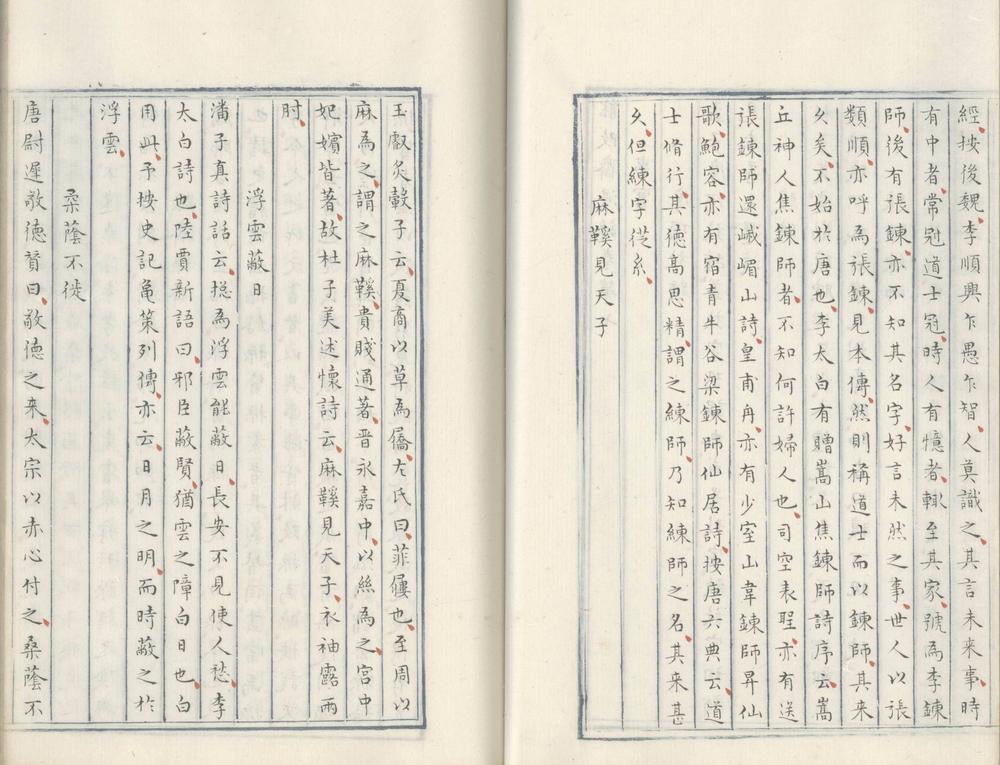 經按後魏李順興乍愚乍智人莫識之其言未来事時
有中者常冠道士冠時人有憶者輙至其家號為李鍊
師後有張鍊亦不知其名字好言未然之事世人以張
類順亦呼為張鍊見本傳然則稱道士而以鍊師其来
乆矣不始於唐也李太白有贈嵩山焦鍊師詩序云嵩
丘神人焦鍊師者不知何許婦人也司空表聖亦有送
張鍊師還峨嵋山詩皇甫冉亦有少室山韋鍊師昇仙
歌鮑容亦有宿青牛谷梁鍊師仙居詩按唐六典云道
士脩行其德髙思精謂之練師乃知練師之名其来甚
乆但練字從糸
麻鞵見天子
玉叡炙轂子云夏商以草為屩左氏曰菲屨也至周以
麻為之謂之麻鞵貴賤通著晋永嘉中以絲為之宫中
妃嬪皆著故杜子美述懷詩云麻鞵見天子衣袖露兩
肘
浮雲蔽日
潘子真詩話云揔為浮雲能蔽日長安不見使人愁李
太白詩也陸賈新語曰邪臣蔽賢猶雲之障白日也白
用此予按史記龜策列傳亦云日月之明而時蔽之於
浮雲
桑蔭不徙
唐尉遲敬德賛曰敬德之来太宗以赤心付之桑蔭不